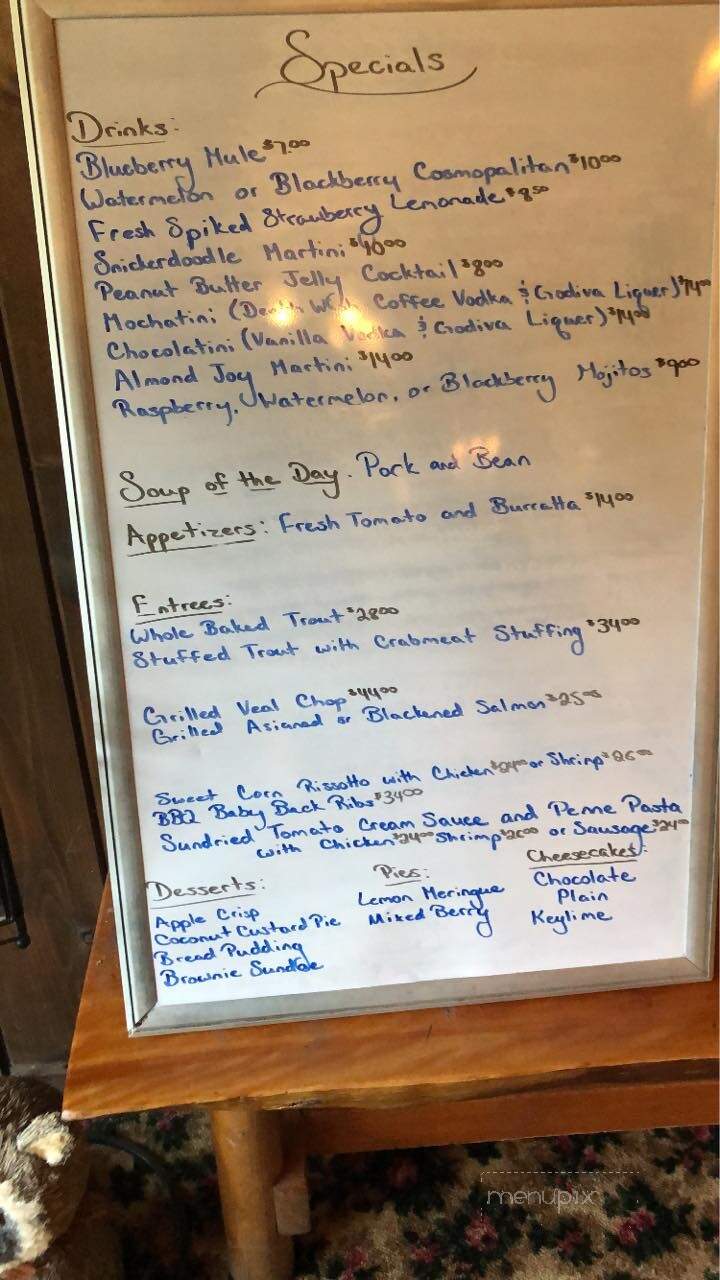 Specials
Drinks:
Blueberry Mule $7.00
Watermelon or Blackberry Cosmopolitan $10.00
Fresh Spiked Strawberry Lemonade $8.50
Snickerdoodle Martini $10.00
Peanut Butter Jelly Cocktail $8.00
Mochatini (Death Wish Coffee Vodka & Godiva Liquer) $14.00
Chocolatini (Vanilla Vodka & Godiva Liquer) $14.00
Almond Joy Martini $14.00
Raspberry, Watermelon, or Blackberry Mojitos $9.00
Soup of the Day. Pork and Bean
Appetizers: Fresh Tomato and Burratta $14.00
Entrees:
Whole Baked Trout $28.00
Stuffed Trout with Crabmeat Stuffing $34.00
Grilled Veal Chop $44.00
Grilled Asianed or Blackened Salmon $25.00
Sweet Corn Rissotto with Chicken $24.00 or Shrimp $26.00
BBQ Baby Back Ribs $34.00
Sundried Tomato Cream Sauce and Penne Pasta
with Chicken $24.00 Shrimp $26.00 or Sausage $24.00
Desserts:
Apple Crisp
Coconut Custard Pie
Bread Pudding
Brownie Sundae
Pies:
Lemon Meringue
Mixed Berry
Cheesecakes:
Chocolate
Plain
Keylime
menupix